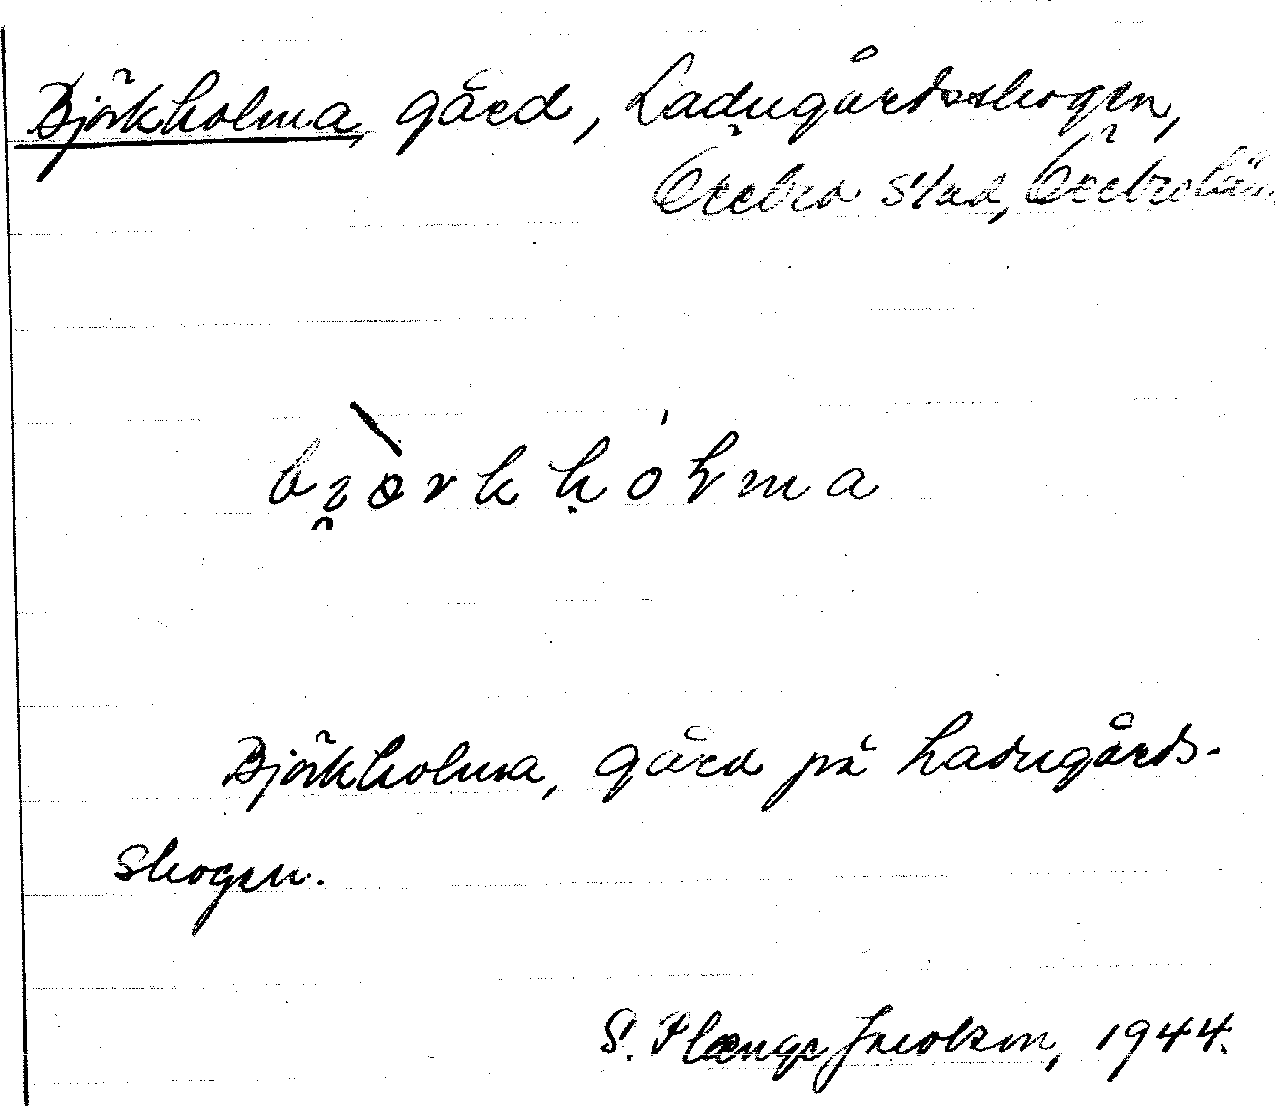 Björkholma, gård, Ladugårdsskogen,
Örebro Stad, Örebro län
Björkholma, gård på Ladugårds-
skogen.
S. Plænge Jacobson, 1944.